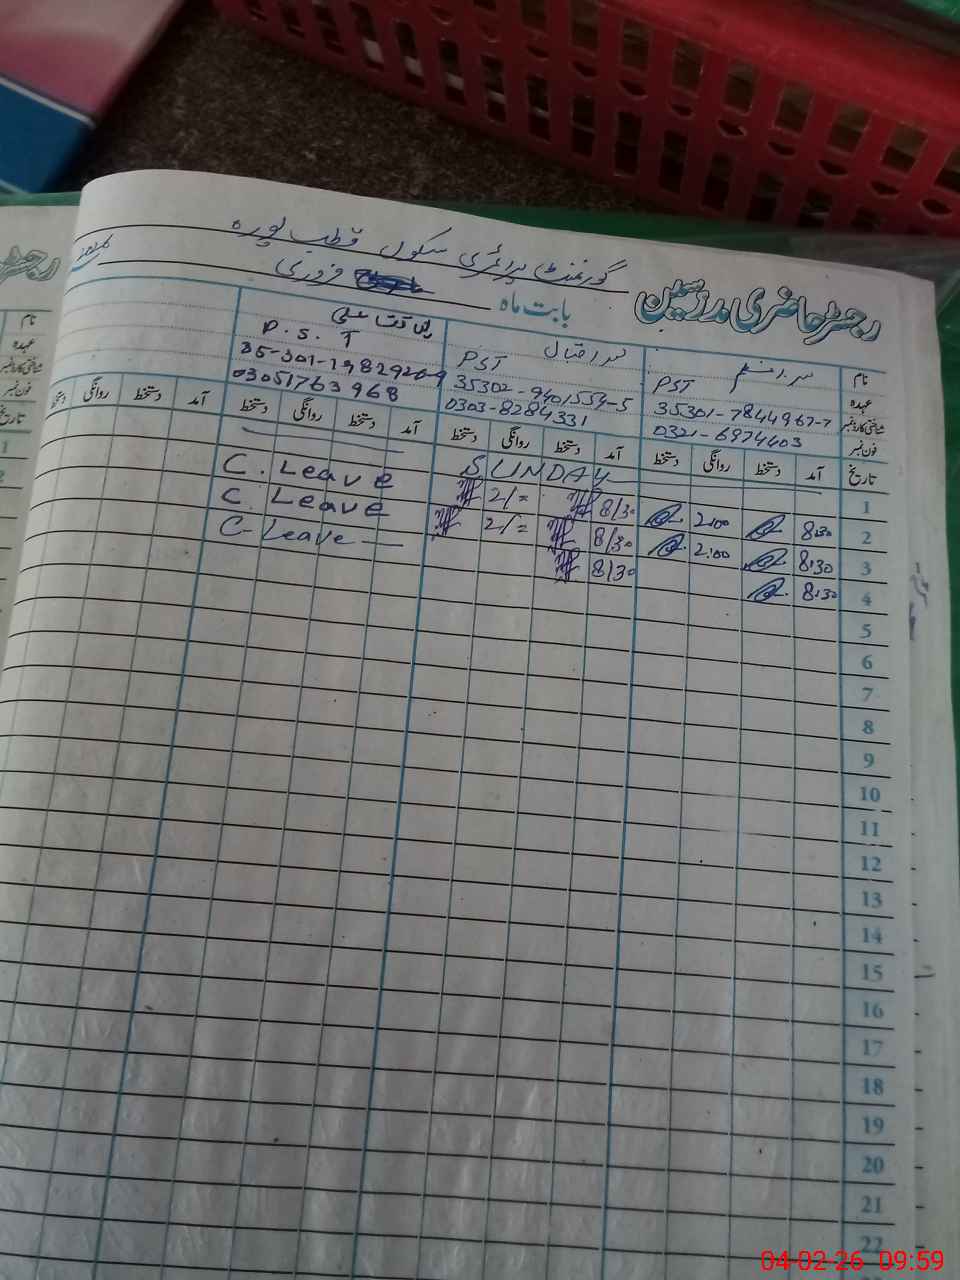 گورنمنٹ پرائمری سکول قطب پورہ
رجسٹر حاضری مدرسین
بابت ماہ فروری 2026
نام
عہدہ PST PST P.S.T
شناختی کارڈ نمبر 35301-7844967-7 35302-9401559-5
فون نمبر 0321-6974403 0303-8284331 03051763968
تاریخ آمد دستخط روانگی دستخط آمد دستخط روانگی دستخط آمد دستخط روانگی دستخط آمد دستخط روانگی دستخط
1 SUNDAY
2 8:30 2:00 8/30 2/= C. Leave
3 8:30 2:00 8/30 2/= C. Leave
4 8:30 8/30 C-Leave
5
6
7
8
9
10
11
12
13
14
15
16
17
18
19
20
21
22
04-02-26 09:59